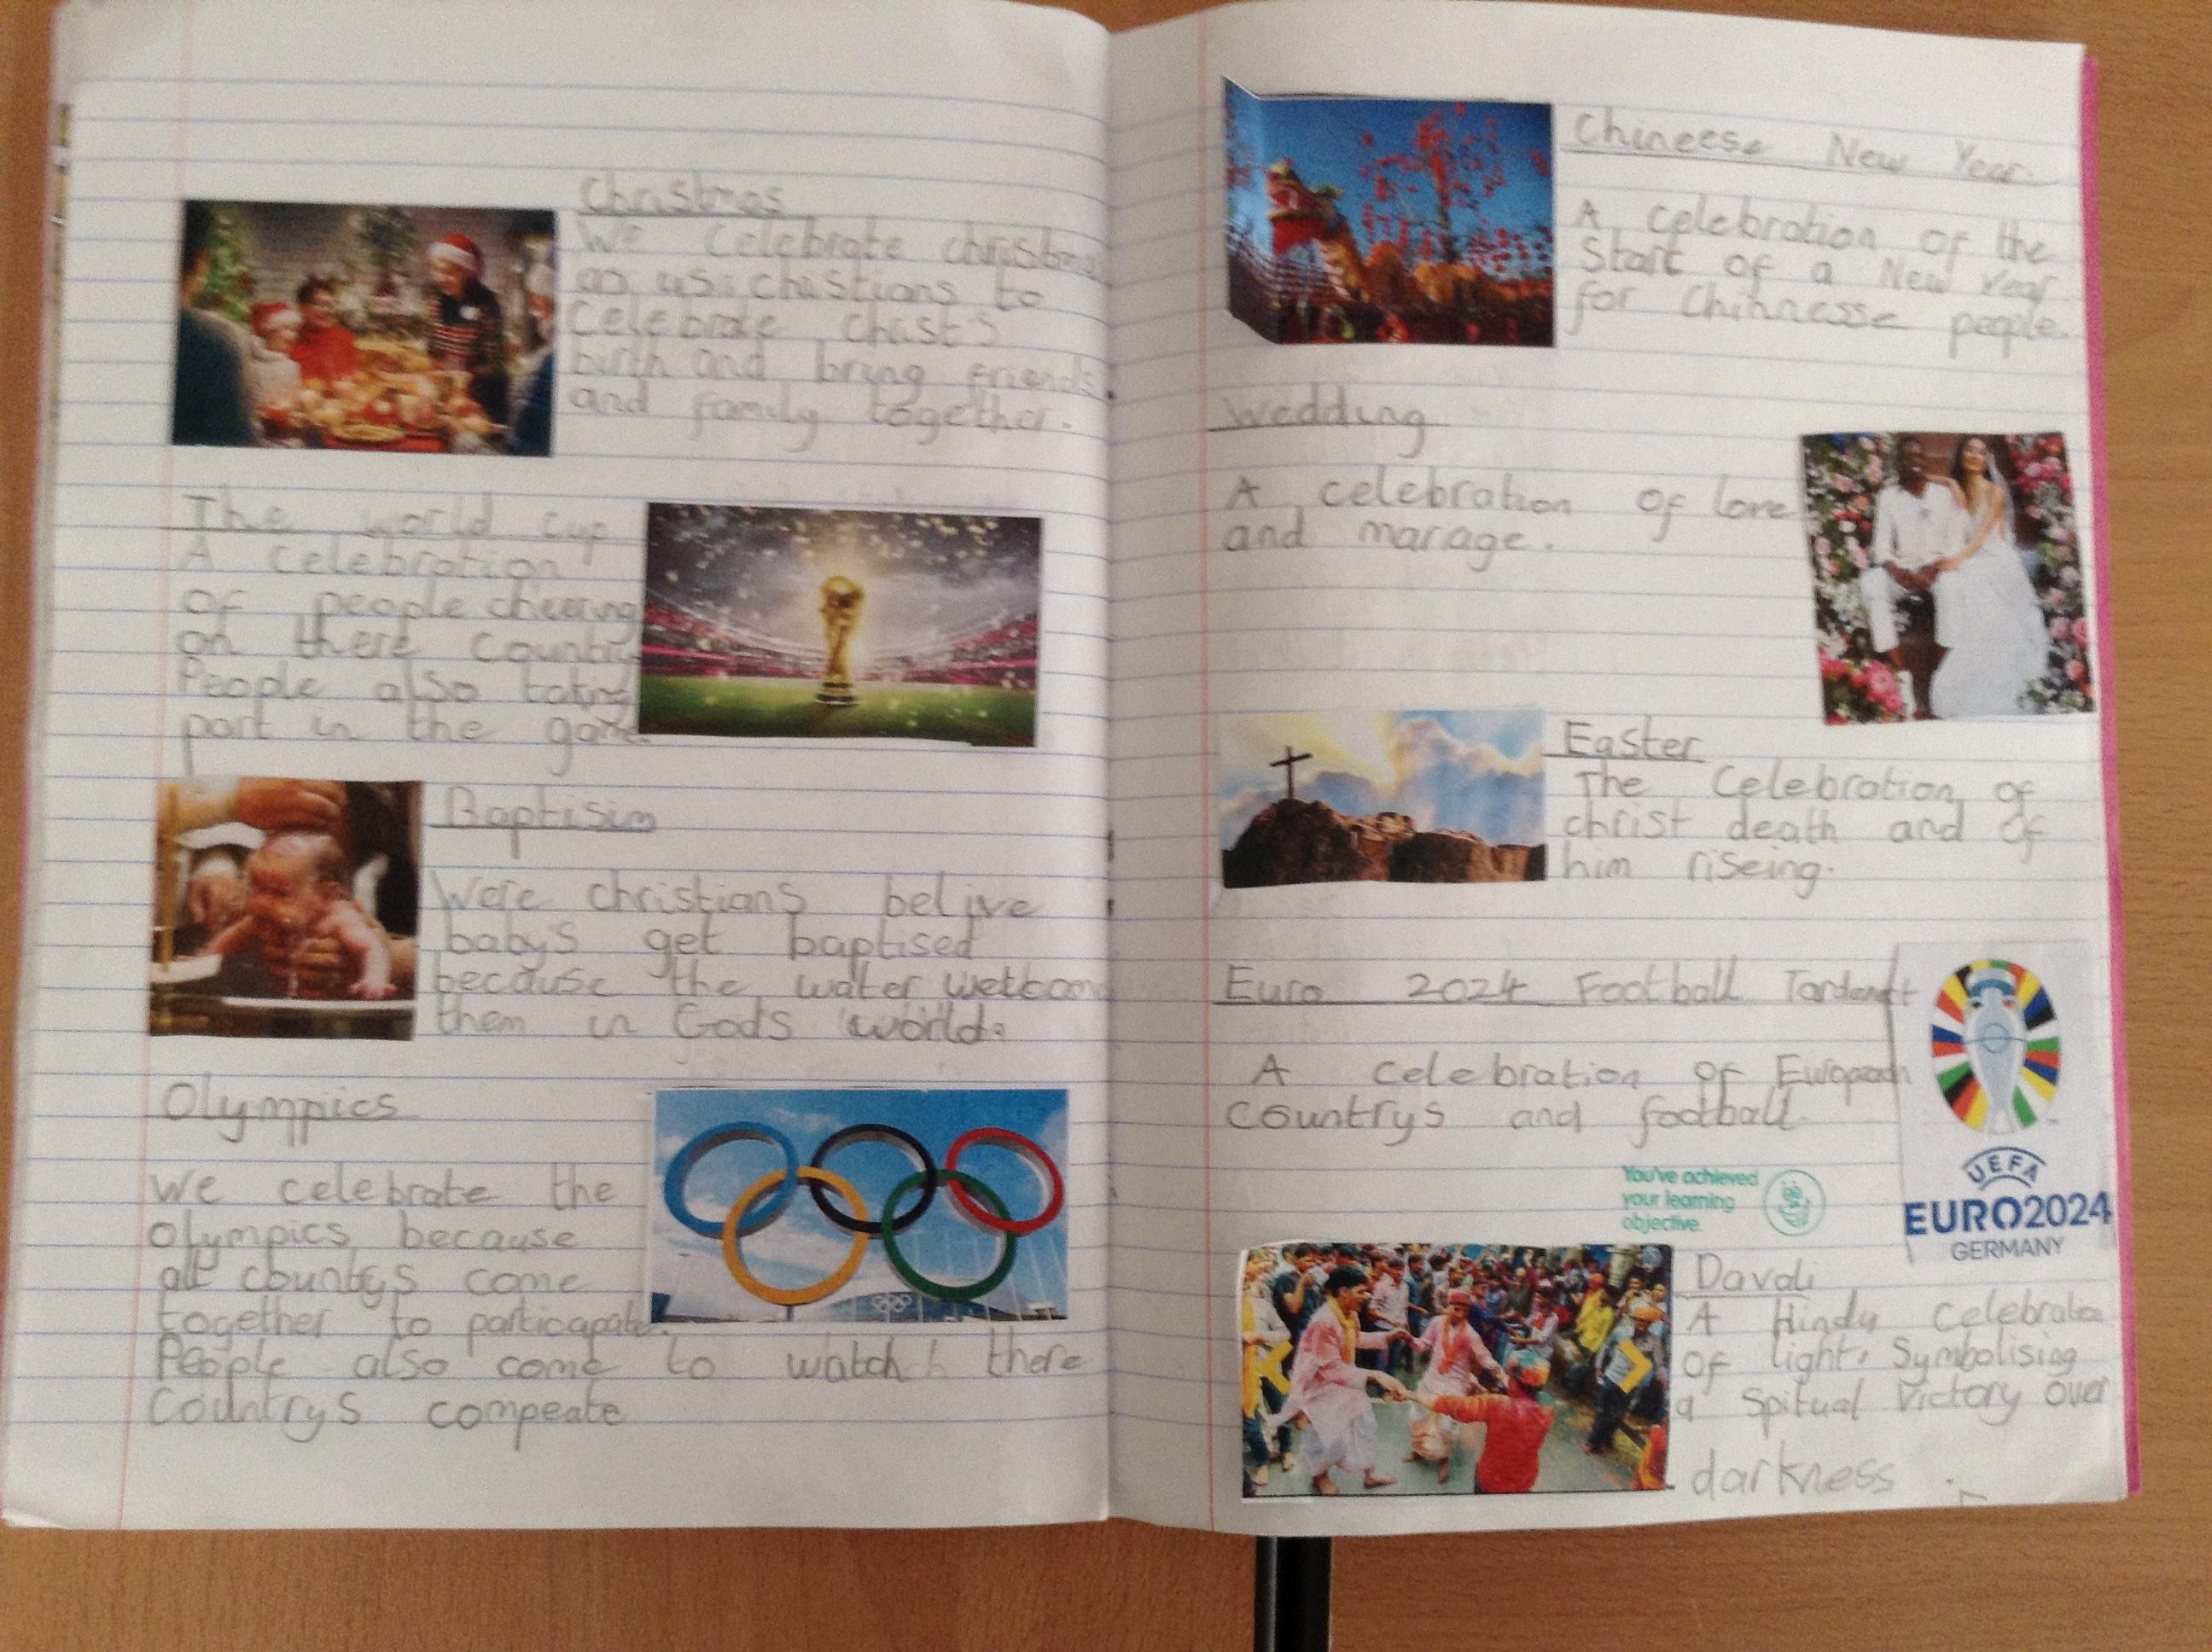 Christmas
We celebrate christmas
as us chistians to
Celebrate christ's
birth and bring friends
and family together.
The world cup
A celebration
of people cheering
on there country
People also taking
part in the game
Baptisim
Were christians belive
baby's get baptised
because the water
them in God's world.
Olympics
We celebrate the
Olympics because
all countys come
together to particapate.
People also come to watch there
Countrys compeate
Chineese New Year.
A celebration of the
Start of a New year
for Chinnesse people.
Wedding
A celebration of love
and marage.
Easter
The Celebration of
christ death and of
him riseing.
Euro 2024 Football
A celebration of European
Countrys and football.
You've achieved
your learning
objective.
UEFA
EURO2024
GERMANY
Davali
A Hindu Celebration
of light, Symbolising
a Spitual Victory Over
darkness